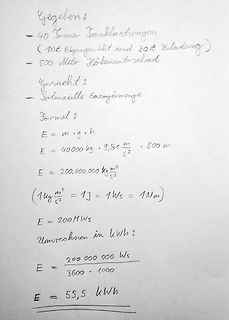 Gegeben:
- 40 Tonnen Tanklastwagen
(10t Eigengewicht und 30t Zuladung)
- 500 Meter Höhenunterschied
Gesucht:
- Potenzielle Energiemenge
Formel:
E = m · g · h
E = 40000 kg · 9,81 m/s² · 500 m
E = 200.000.000 kg m²/s²
(1 kg m²/s² = 1J = 1Ws = 1Nm)
E = 200 MWs
Umrechnen in kWh:
E = 200 000 000 Ws / 3600 · 1000
E = 55,5 kWh